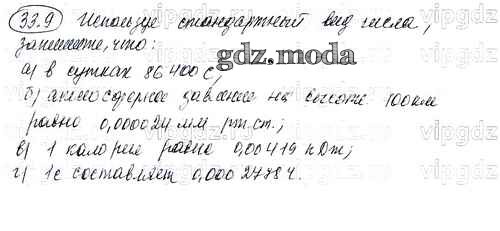 33.9 Используя стандартный вид числа,
запишите, что:
а) в сутках 86400 с;
gdz.moda
б) атмосферное давление на высоте 100 км
равно 0,000024 мм рт.ст.;
в) 1 калория равно 0,00419 кДж;
г) 1с составляет 0,0002778 ч.